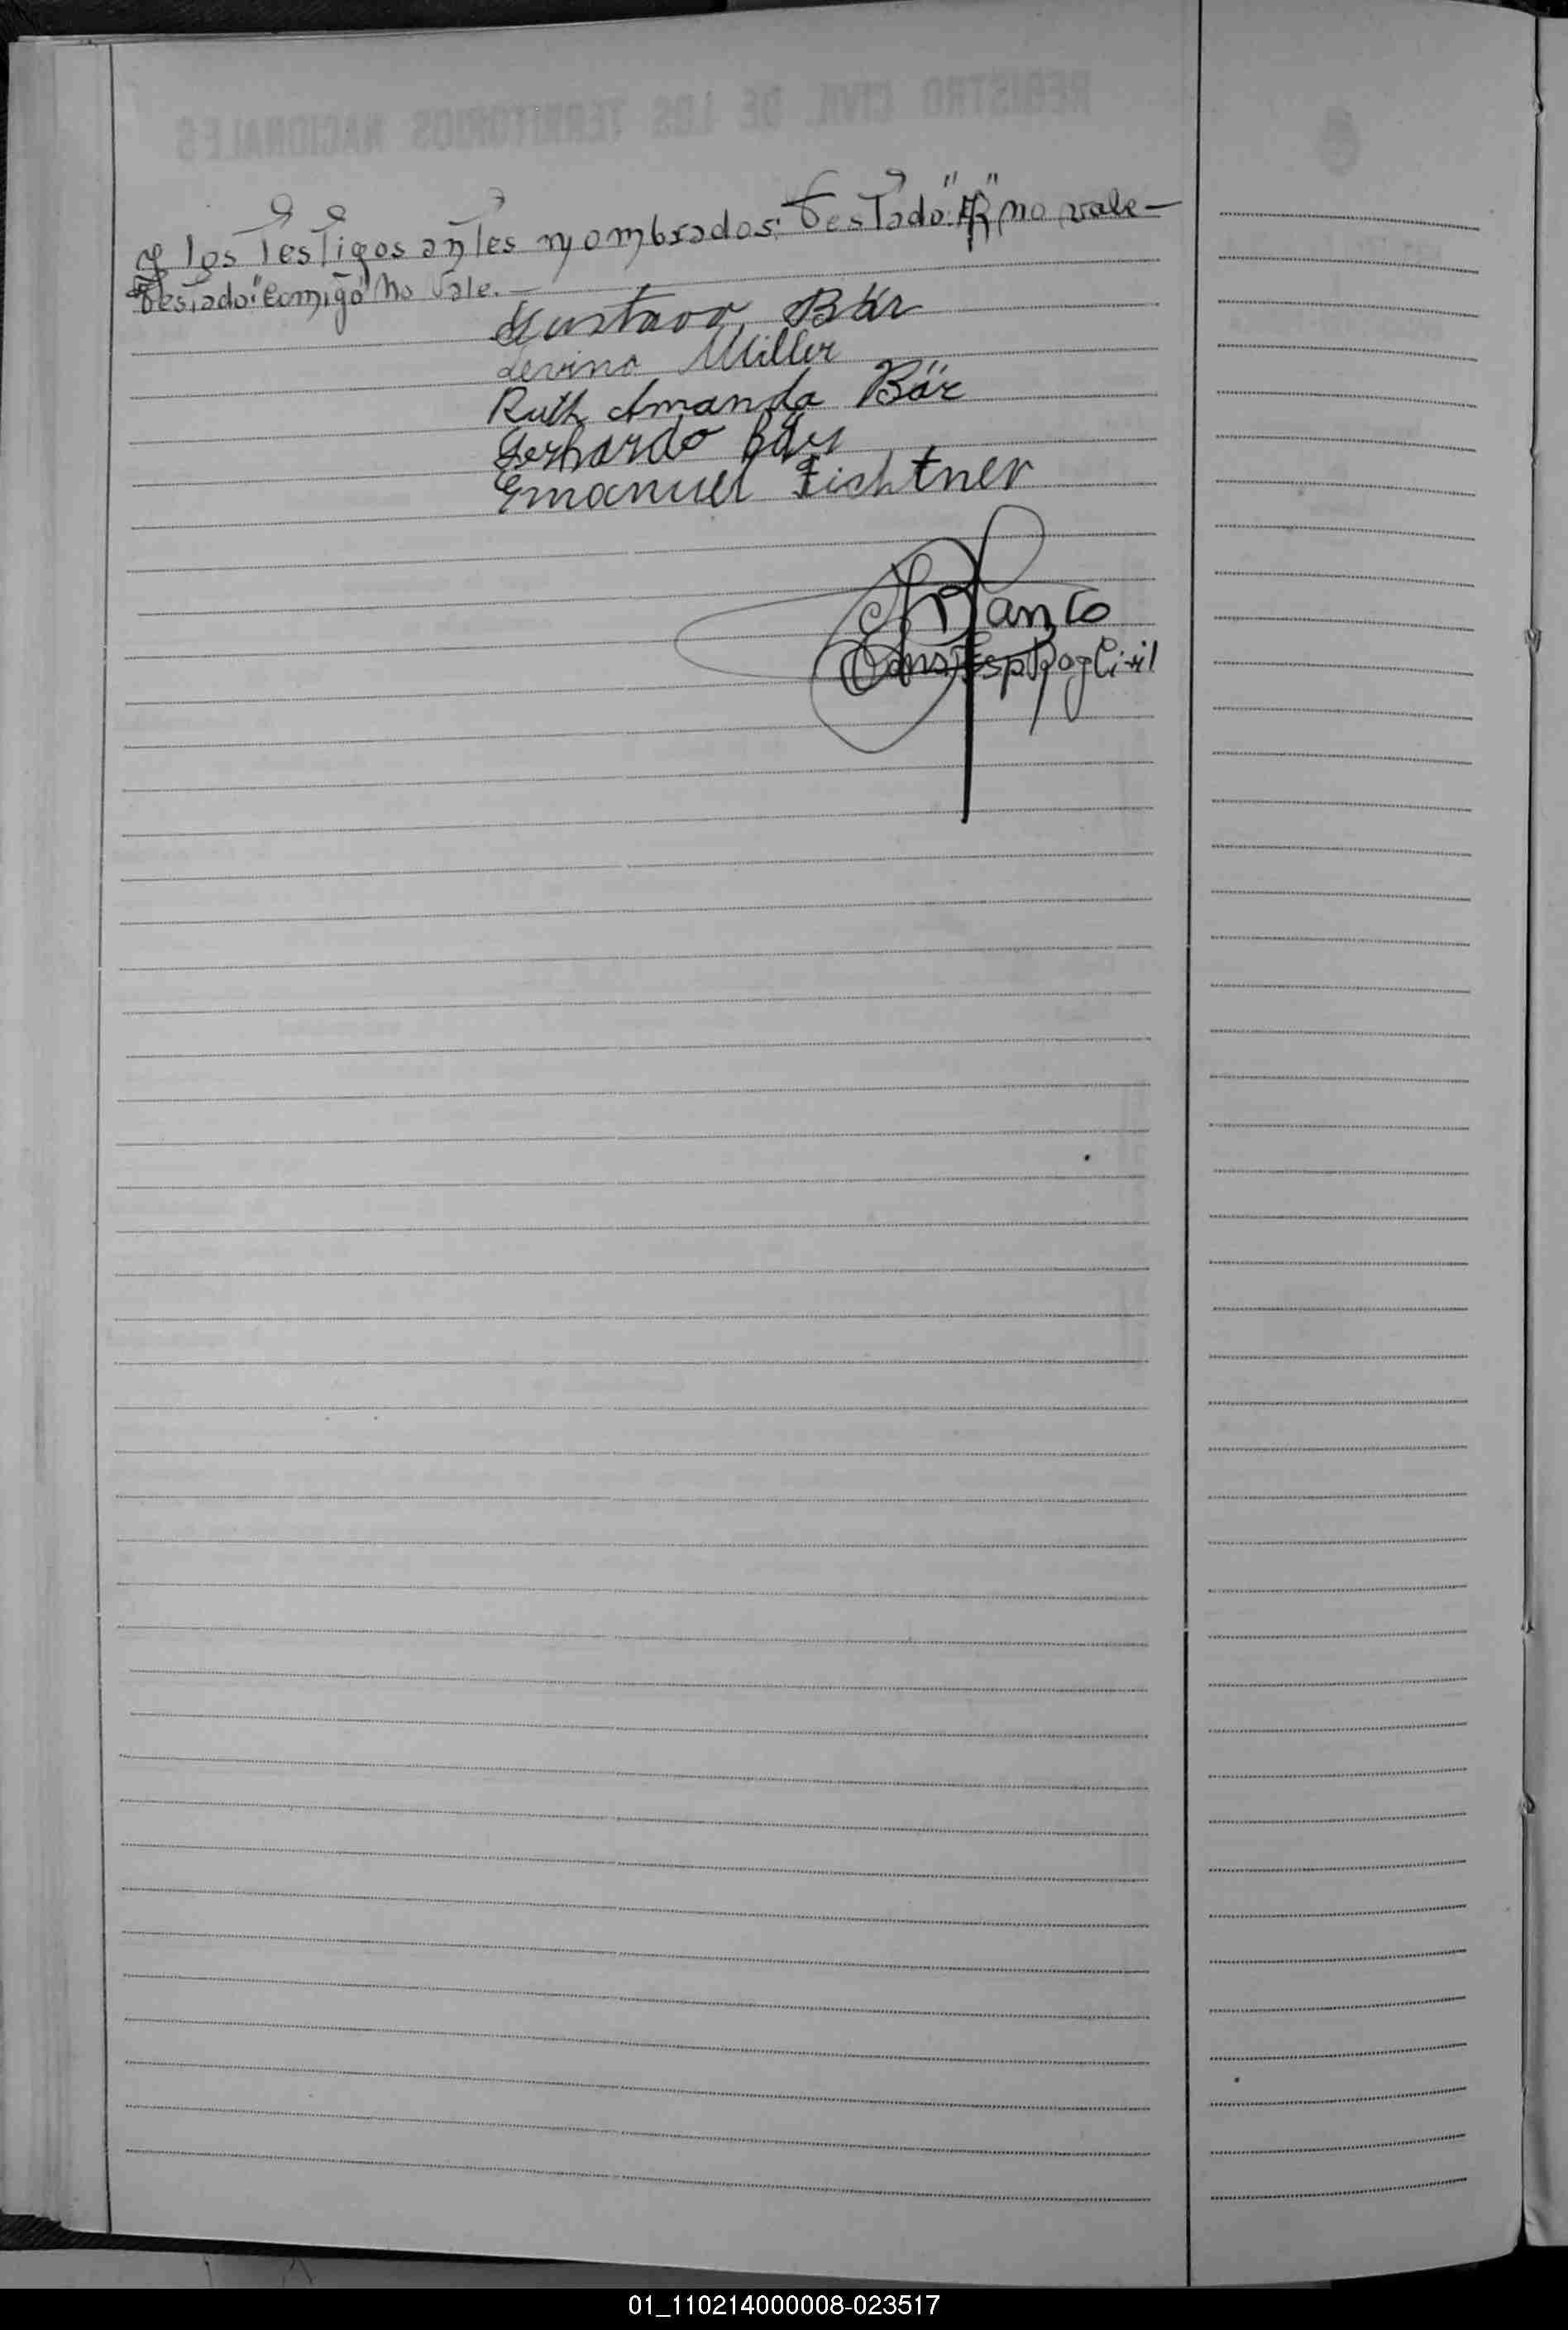 y los Testigos antes nombrados: Testado: "R" no vale—
Testado: "Comigo" no vale.—
Gustavo Bär
Levino Miller
Ruth Amanda Bär
Gerhardo Bär
Emanuel Fichtner
Civil
01_110214000008-023517